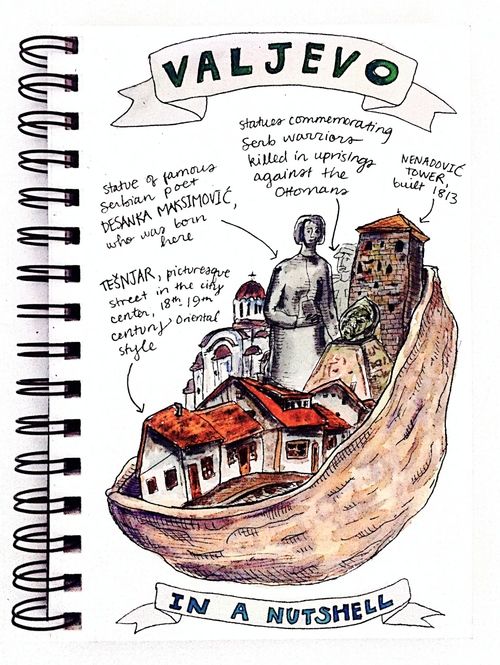 VALJEVO
statue of famous
Serbian poet
DESANKA MAKSIMOVIĆ,
who was born
here
statues commemorating
Serb warriors
killed in uprisings
against the
Ottomans
NENADOVIĆ
TOWER,
built 1813
TEŠNJAR, picturesque
street in the city
center, 18th 19th
century Oriental
style
IN A NUTSHELL